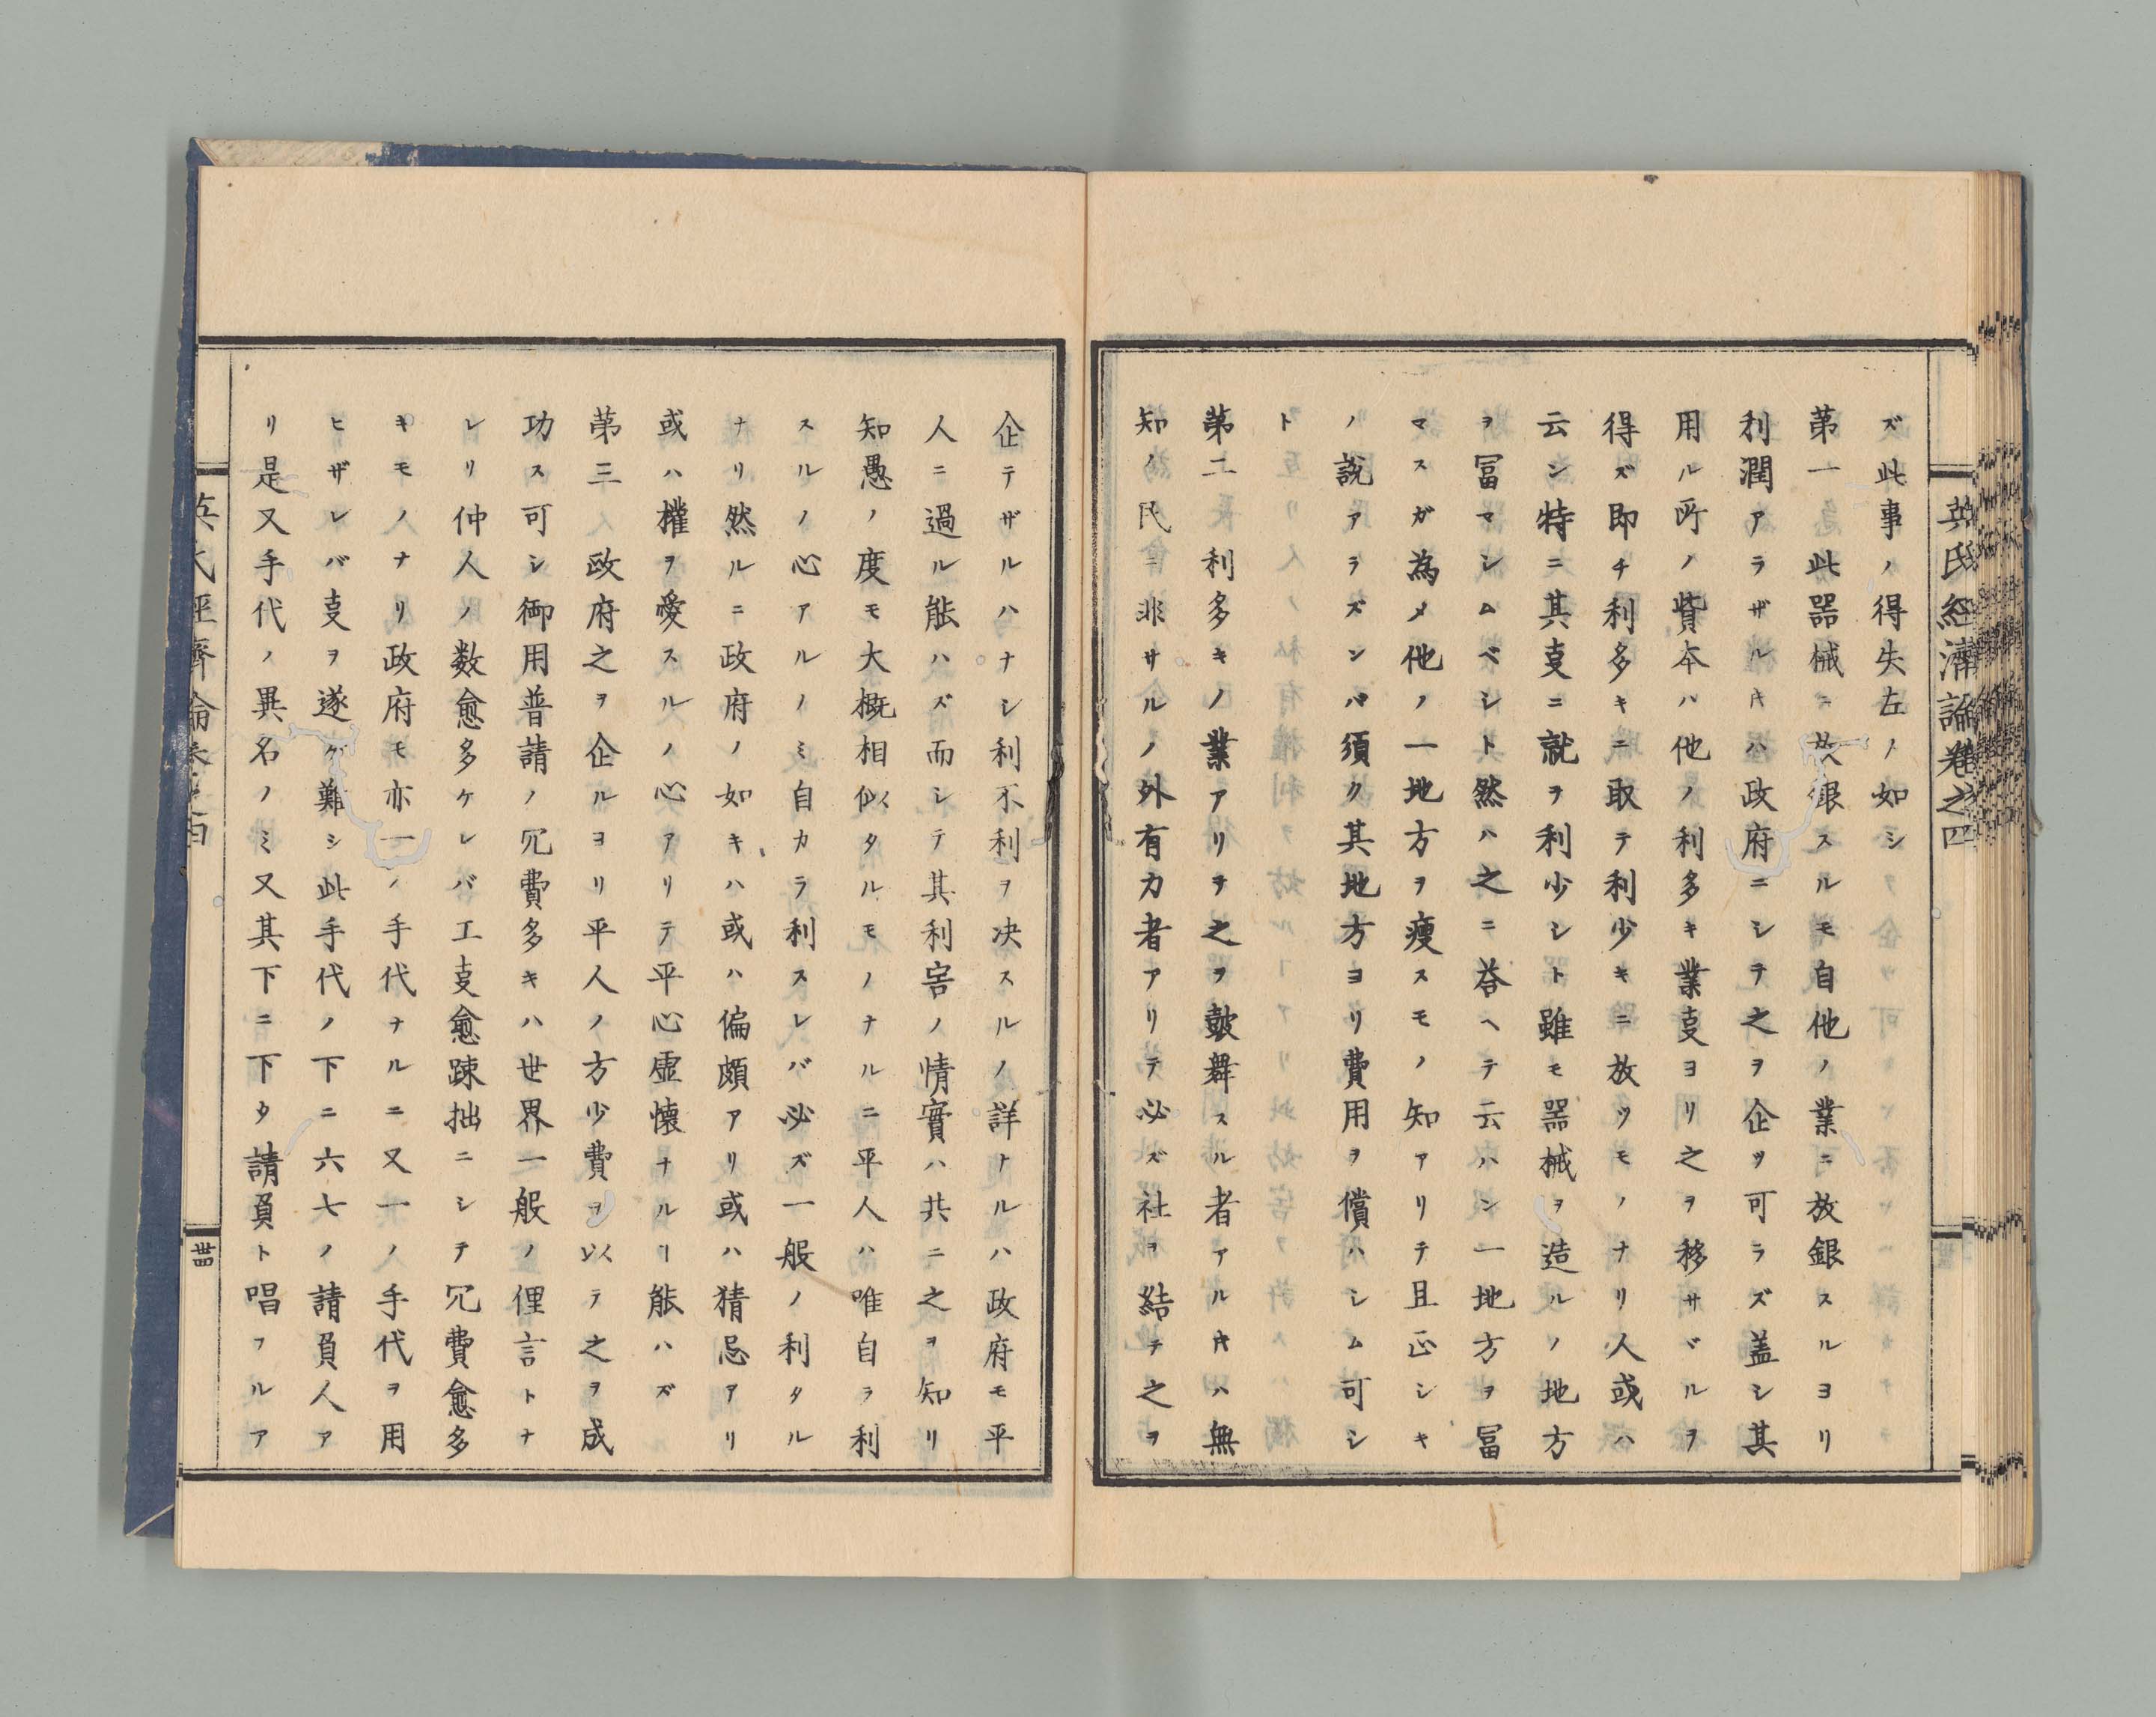 英氏経済論巻之四
ズ此事ノ得失左ノ如シ
第一此器械ニ放銀スルモ自他ノ業ニ放銀スルヨリ
利潤アラザル𪜈ハ政府ニシテ之ヲ企ツ可ラズ蓋シ其
用ル所ノ貲夲ハ他ノ利多キ業㕝ヨリ之ヲ移サヾルヲ
得ズ即チ利多キニ取テ利少キニ放ツモノナリ人或ハ
云シ特ニ其㕝ニ就ヲ利少シト雖モ器械ヲ造ルノ地方
ヲ冨マシムベシト然ハ之ニ答ヘテ云ハン一地方ヲ冨
マスガ為メ他ノ一地方ヲ瘦スモノ知アリテ且正シキ
ノ説アラズンバ須ク其地方ヨリ費用ヲ償ハシム可シ
ト
第二 利多キノ業アリヲ之ヲ皷舞スル者アル𪜈ハ無
知ノ民ニ非サルノ外有力者アリテ必ズ社ヲ結テ之ヲ
企テザルハナシ利不利ヲ决スルノ詳トルハ政府モ平
人ニ過ル能ハズ而シテ其利害ノ情實ハ共ニ之ヲ知リ
知愚ノ度モ大概相似タルモノナルニ平人ハ唯自ラ利
スルノ心アルノミ自カラ利スレバ必ズ一般ノ利タル
ナリ然ルニ政府ノ如キハ或ハ偏頗アリ或ハ猜忌アリ
或ハ權ヲ愛スルノ心アリテ平心虚懐ナルヿ能ハズ
第三 政府之ヲ企ルヨリ平人ノ方少費ヲ以テ之ヲ成
功ス可シ御用普請ノ冗費多キハ世界一般ノ俚言トナ
レリ仲人ノ数愈多ケレバ工㕝愈踈拙ニシテ冗費愈多
キモノナリ政府モ亦一ノ手代ナルニ又一ノ手代ヲ用
ヒザレバ㕝ヲ遂ゲ難シ此手代ノ下ニ六七ノ請負人ア
リ是又手代ノ異名ノミ又其下ニ下タ請負ト唱フルア
英氏経済論巻之四
卅四